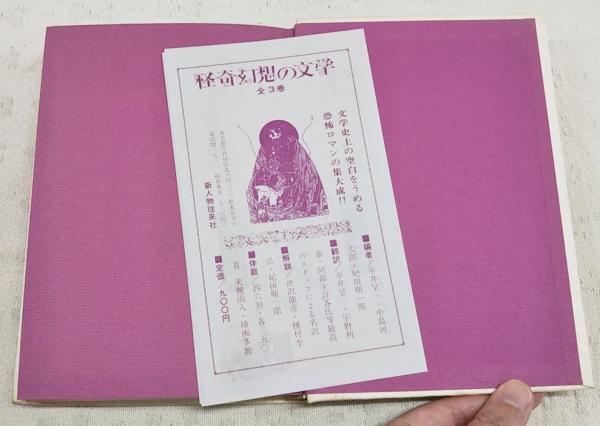 怪奇幻想の文学
全3巻
文学史上の空白をうめる
恐怖ロマンの集大成!!
新人物往来社
■編者/平井呈一・中島河
太郎・紀田順一郎
■翻訳/平井呈一・宇野利
泰・阿部主計各氏等最高
のスタッフによる名訳
■解説/渋沢龍彦・種村季
弘・紀田順一郎
■体裁/四六判・各三五〇
頁 美麗函入・挿画多数
■定価/九〇〇円